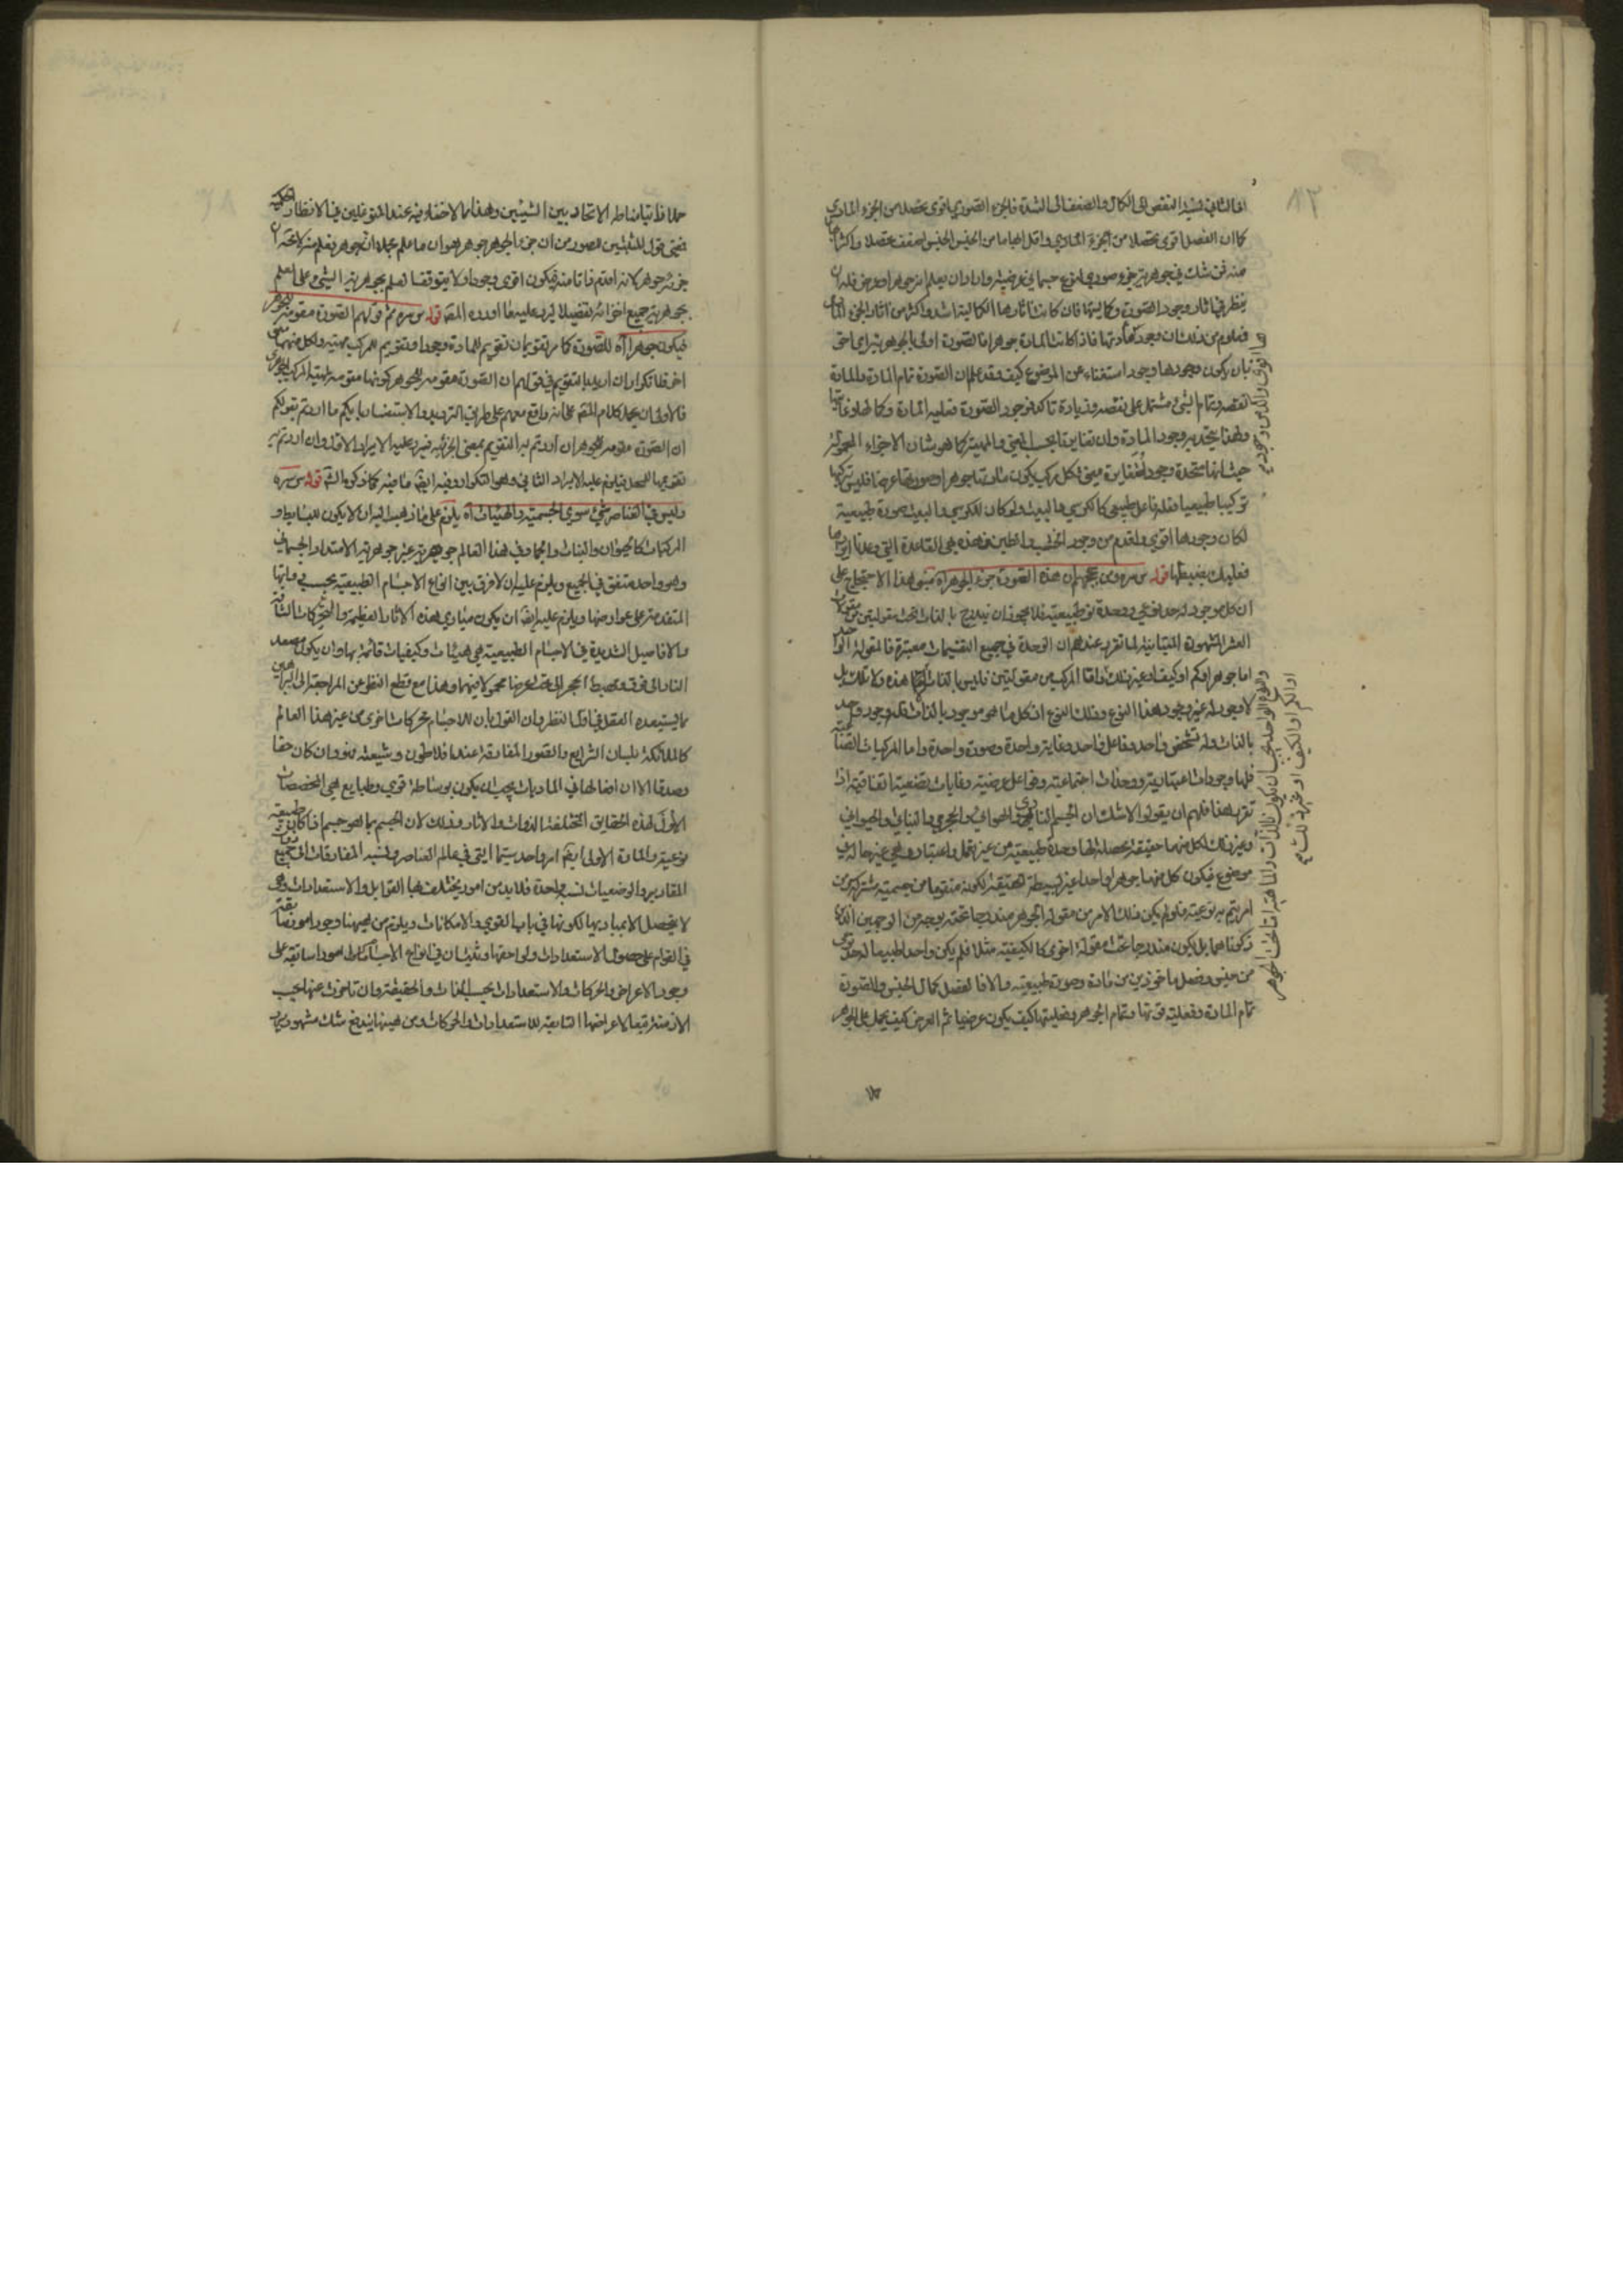 اما الثاني نسبة النقص الى الكمال والضعف الى الشدة فالجزء الصوري اقوى تحصلا من الجزء المادي
كما ان الفصل اقوى تحصلا من الجزء المادي واقل ابهاما من الجنس الجنس اضعف تحصلا واكثر
منه فمن شك في جوهرية جزء صوري لنوع جسماني عرضيته واراد ان يعلم انه جوهر او عرض فله ان
ينظر في اثار وجود الصورة وكماليتها فان كانت اثارها الكمالية اشد واكثر من اثار الجزء
فيعلم من ذلك ان وجود مادتها فاذا كانت المادة جوهرا فالصورة اولى بالجوهرية اي احق
بان يكون وجودها وجود استغناء عن الموضوع كيف وقد علم ان الصورة تمام المادة والمادة
نقصه وتمام الشيء مشتمل على نقصه وزيادة تاكد فوجود الصورة فعلية المادة وكمالها وغايتها
ولهذا يتحد به وجود المادة وان تغايرتا بحسب المعنى والمهية كما هو شان الاجزاء المحمولة
حيث انها متحدة وجودا متغايرة معنى فكل مركب يكون مادتها جوهرا وصورتها عرضا فليس تركيبها
تركيبا طبيعيا فله فاعل طبيعي كالكرسي والبيت ولو كان للكرسي والبيت صورة طبيعية
لكان وجودها اقوى واقدم من وجود الخشب والطين فهذه هي القاعدة التي وعدنا
فعليك بضبطها قوله س سره ومن حججهم ان هذه الصورة جزء الجوهر اه مبنى هذا الاحتجاج على
ان كل موجود له حد نوعي ووحدة نوعية طبيعية فلا يجوز ان يندرج بالذات تحت مقولتين من مقولات
العشر المشهورة المتباينة لما تقرر عندهم ان الوحدة في جميع التقسيمات معتبرة فالمقولة
اما جوهر او كم او كيف او غير ذلك واما المركب من مقولتين فليس بالذات لا هذه ولا تلك بل
لا وجود له غير وجود هذا النوع وذلك النوع اذ كل ما هو موجود بالذات فله وجود واحد
بالذات وله تشخص واحد وفاعل واحد وغاية واحدة وصورة واحدة واما المركبات الصناعية
فلها وجودات اعتبارية ووحدات اجتماعية وفواعل عرضية وغايات اتفاقية اذا
تقرر هذا فلهم ان يقولوا لا شك ان الجسم الناري والهوائي والحجري والنباتي والحيواني
وغير ذلك لكل منها حقيقة محصلة لها وحدة طبيعية من غير تعمل واعتبار وهي غير حالة في
موضوع فيكون كل منها جوهرا واحدا غير بسيطة الحقيقة لكونه متقوما من جسمية مشتركة ومن
امر يتم به نوعيته فلو لم يكن ذلك الامر من مقولة الجوهر مندرجا تحته بوجه من الوجهين الذين
ذكرناهما بل يكون مندرجا تحت مقولة اخرى كالكيفية مثلا فلم يكن واحدا طبيعيا له حد نوعي
من جنس وفصل ماخوذين من مادة وصورة طبيعية والا فالفصل كمال الجنس والصورة
تمام المادة وفعلية قوتها وتمام الجوهر وفعليتها كيف يكون عرضيا ثم العرض كيف يحمل على الجوهر
والنوع الواحد يجب ان يكون بالذات والماهية اما تحت الجوهر
او الكم او الكيف او غير ذلك
حملا ذاتيا مناطه الاتحاد بين الشيئين وهذا مما لا خفاء فيه عند المتوغلين في الانظار الحكمية
فعني قول المثبتين للصور من ان جزء الجوهر جوهر هو ان ما علم مجملا ان جوهر يعلم منه لا محالة ان
جزئه جوهر لانه اقدم ذاتا منه فيكون اقوى وجودا ولا يتوقف العلم بجوهرية الشيء على العلم
بجوهرية جميع اجزائه تفصيلا ليرد عليه ما اورده المصـ قوله س سره ثم قولهم الصورة مقومة للجوهر
فيكون جوهرا اه للصورة كما مر تقويمان تقويم للمادة وجودا وتقويم للمركب مهية ولكل منهما معنى
اخر فلا تكرار ان اريد بالتقويم في قولهم ان الصورة مقومة للجوهر كونها مقومة لمهية المركب الجوهري
فالاولى ان يحمل كلام المصـ على انه واقع معهم على طريق الترديد والاستفسار بانكم ما اردتم بقولكم
ان الصورة مقومة للجوهر ان اردتم به التقويم بمعنى الجزئية فيرد عليه الايراد الاول وان اردتم به
تقويمها للمحل فيلزم عليه الايراد الثاني وهو التكرار وفيه ايضا ما فيه كما ذكره الشـ قوله س سره
وليس في العناصر شيء سوى الجسمية والهيئات اه يلزم على ما ذهب اليه ان لا يكون للبسايط و
المركبات كالحيوان والنبات والجماد في هذا العالم جوهرية غير جوهرية الامتداد الجسماني
وهو واحد متفق في الجميع ويلزم عليه ان لا فرق بين انواع الاجسام الطبيعية بحسب ذواتها
المتقدمة على عوارضها ويلزم عليه ايضا ان يكون مبادي هذه الاثار العظيمة والتحريكات الشاقة
والافاعيل الشديدة في الاجسام الطبيعية هي هيئات وكيفيات قائمة بها وان يكون مصعد
النار الى فوق ومهبط الحجر الى تحت عرضا محمولا فيهما وهذا مع قطع النظر عن المراجعة الى البراهين
مما يستبعده العقل في اول النظر وان القول بان للاجسام محركات اخرى من غير هذا العالم
كالملائكة بلسان الشرايع والصور المفارقة عند افلاطون وشيعته فهو وان كان حقا
وصدقا الا ان افعالها في الماديات يجب ان يكون بوساطة قوى وطبايع هي المخصصات
الاولى لهذه الحقايق المختلفة الذوات والاثار وذلك لان الجسم بما هو جسم اذا كان طبيعة
نوعية والمادة الاولى ايضا امر واحد سيما التي في عالم العناصر ونسبة المفارقات الى جميع
المقادير والوضعيات نسبة واحدة فلا بد من امور يختلف بها القوابل والاستعدادات وهي
لا يتحصل الا بمباديها لكونها في باب القوى والامكانات ويلزم من هيهنا وجود امور سابقة
في القوام على حصول الاستعدادات ولواحقها ويثبت ان في انواع الاجسام امورا سابقة على
وجود الاعراض والحركات والاستعدادات بحسب الذات والحقيقة وان تاخرت عنها بحسب
الازمنة تبعا لاعراضها التابعة للاستعدادات والحركات ومن هيهنا يندفع شك مشهور